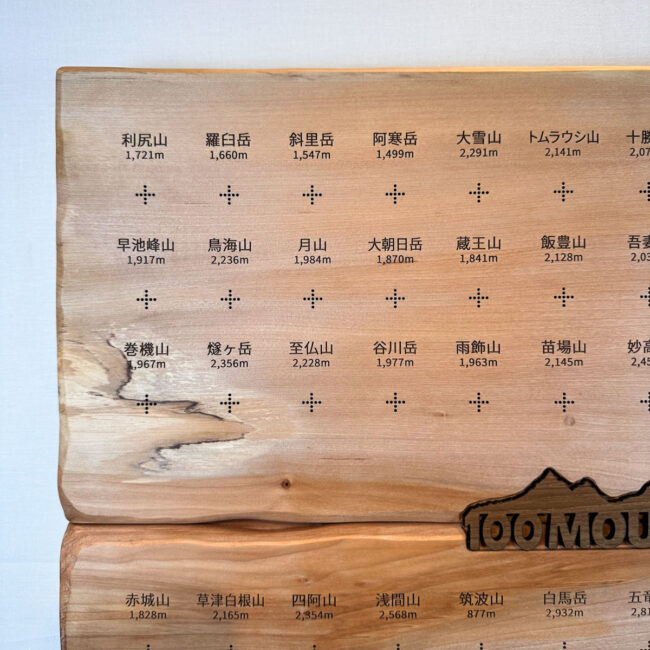 利尻山 羅臼岳 斜里岳 阿寒岳 大雪山 トムラウシ山 十勝
1,721m 1,660m 1,547m 1,499m 2,291m 2,141m 2,07
早池峰山 鳥海山 月山 大朝日岳 蔵王山 飯豊山 吾妻
1,917m 2,236m 1,984m 1,870m 1,841m 2,128m 2,03
巻機山 燧ヶ岳 至仏山 谷川岳 雨飾山 苗場山 妙高
1,967m 2,356m 2,228m 1,977m 1,963m 2,145m 2,45
100 MOU
赤城山 草津白根山 四阿山 浅間山 筑波山 白馬岳 五竜
1,828m 2,165m 2,354m 2,568m 877m 2,932m 2,81